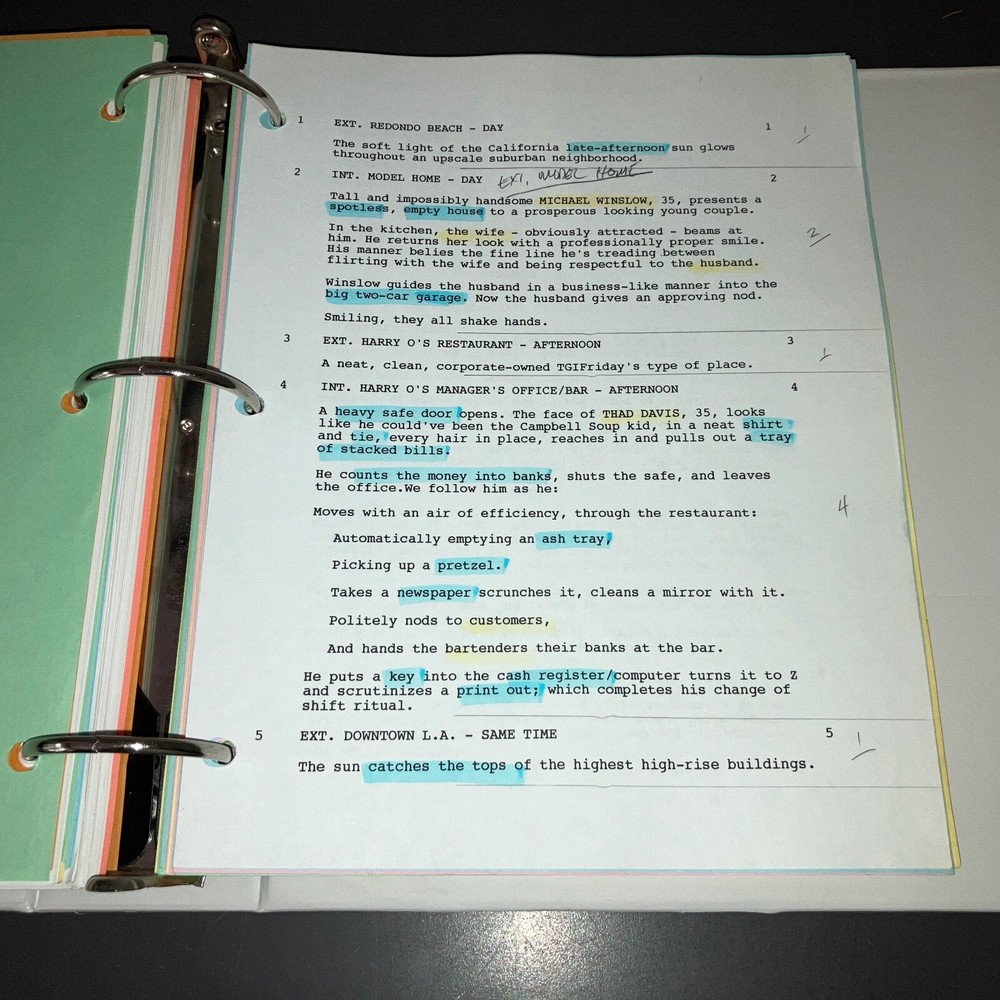 1 EXT. REDONDO BEACH - DAY 1 1
The soft light of the California late-afternoon sun glows
throughout an upscale suburban neighborhood.
2 INT. MODEL HOME - DAY EXT. MODEL HOME 2
Tall and impossibly handsome MICHAEL WINSLOW, 35, presents a
spotless, empty house to a prosperous looking young couple.
In the kitchen, the wife - obviously attracted - beams at
him. He returns her look with a professionally proper smile. 2
His manner belies the fine line he's treading between
flirting with the wife and being respectful to the husband.
Winslow guides the husband in a business-like manner into the
big two-car garage. Now the husband gives an approving nod.
Smiling, they all shake hands.
3 EXT. HARRY O'S RESTAURANT - AFTERNOON 3
1
A neat, clean, corporate-owned TGIFriday's type of place.
4 INT. HARRY O'S MANAGER'S OFFICE/BAR - AFTERNOON 4
A heavy safe door opens. The face of THAD DAVIS, 35, looks
like he could've been the Campbell Soup kid, in a neat shirt
and tie, every hair in place, reaches in and pulls out a tray
of stacked bills.
He counts the money into banks, shuts the safe, and leaves
the office.We follow him as he:
Moves with an air of efficiency, through the restaurant: 4
Automatically emptying an ash tray,
Picking up a pretzel.
Takes a newspaper scrunches it, cleans a mirror with it.
Politely nods to customers,
And hands the bartenders their banks at the bar.
He puts a key into the cash register/computer turns it to Z
and scrutinizes a print out; which completes his change of
shift ritual.
5 EXT. DOWNTOWN L.A. - SAME TIME 5 1
The sun catches the tops of the highest high-rise buildings.